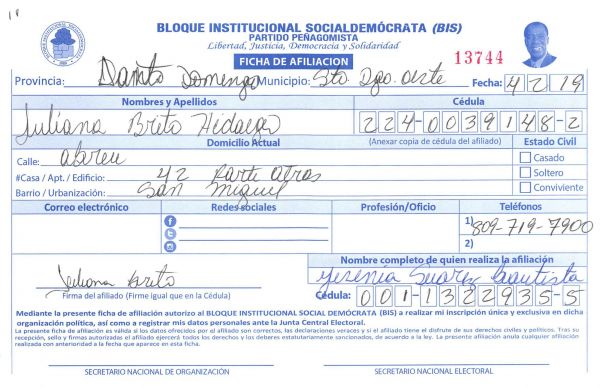 BLOQUE INSTITUCIONAL SOCIALDEMÓCRATA (BIS)
PARTIDO PEÑAGOMISTA
Libertad, Justicia, Democracia y Solidaridad
FICHA DE AFILIACION
13744
Provincia: Santo Domingo Municipio: Sto. Dgo. Oeste Fecha: 4/2/19
Nombres y Apellidos Cédula
Juliana Brito Hidalgo 224-0039148-2
Domicilio Actual (Anexar copia de cédula del afiliado) Estado Civil
Calle: abreu Casado
#Casa / Apt. / Edificio: 42 Parte atras Soltero
Barrio / Urbanización: San Miguel Conviviente
Correo electrónico Redes sociales Profesión/Oficio Teléfonos
1) 809-719-7900
2)
Nombre completo de quien realiza la afiliación
Juliana Brito Yesenia Suarez Bautista
Firma del afiliado (Firme igual que en la Cédula) Cédula: 001-1322935-5
Mediante la presente ficha de afiliación autorizo al BLOQUE INSTITUCIONAL SOCIAL DEMÓCRATA (BIS) a realizar mi inscripción única y exclusiva en dicha
organización política, así como a registrar mis datos personales ante la Junta Central Electoral.
La presente ficha de afiliación es válida si los datos ofrecidos por el afiliado son correctos, las declaraciones veraces y si el afiliado tiene el disfrute de sus derechos civiles y políticos. Tras su
recepción, sello y firmas autorizadas el afiliado ejercerá todos los derechos y los deberes estatutariamente sancionados, de acuerdo a la ley. La presente afiliación anula cualquier afiliación
realizada con anterioridad a la fecha que aparece en esta ficha.
SECRETARIO NACIONAL DE ORGANIZACIÓN SECRETARIO NACIONAL ELECTORAL